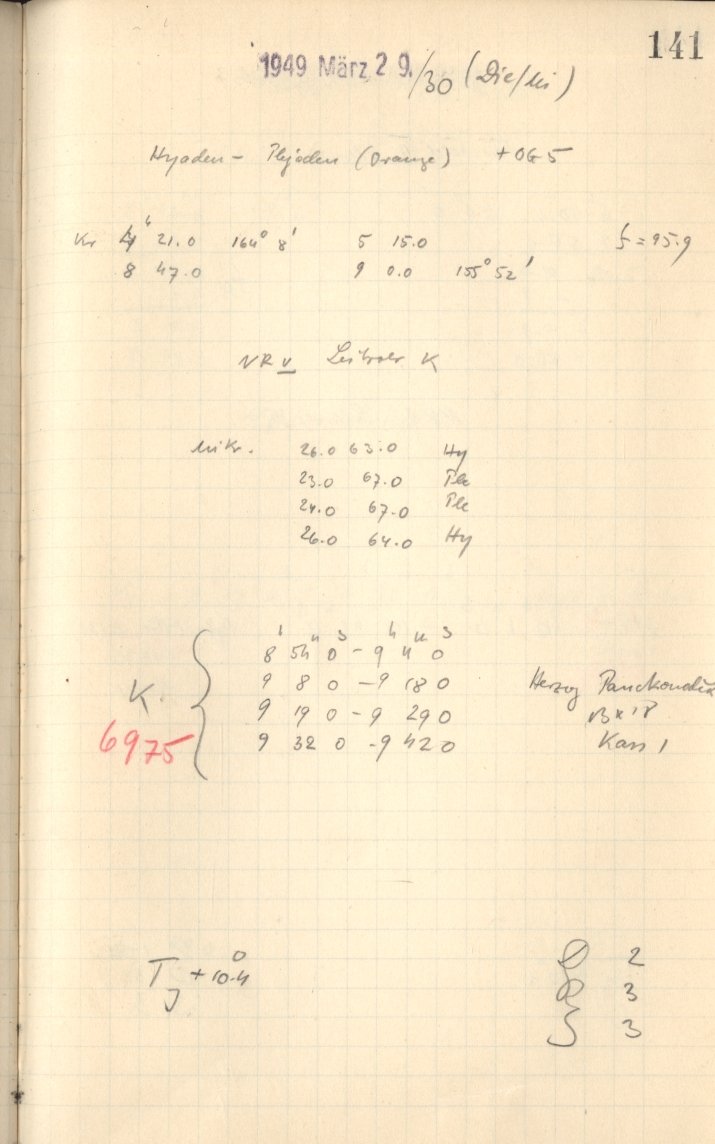 141
1949 März 29./30 (Die/Mi)
Hyaden - Plejaden (Orange) + OG 5
Kr 4 h 21.0 164° 8' 5 15.0 f = 95.9
8 47.0 9 0.0 155° 52'
NR V Leitrohr K
Mikr. 26.0 63.0 Hy
23.0 67.0 Ple
24.0 67.0 Ple
26.0 64.0 Hy
h m s h m s
8 54 0 - 9 4 0
9 8 0 - 9 18 0 Herzog
9 19 0 - 9 29 0
9 32 0 - 9 42 0 Kass 1
K
6975
T J + 10.4°
2
3
3